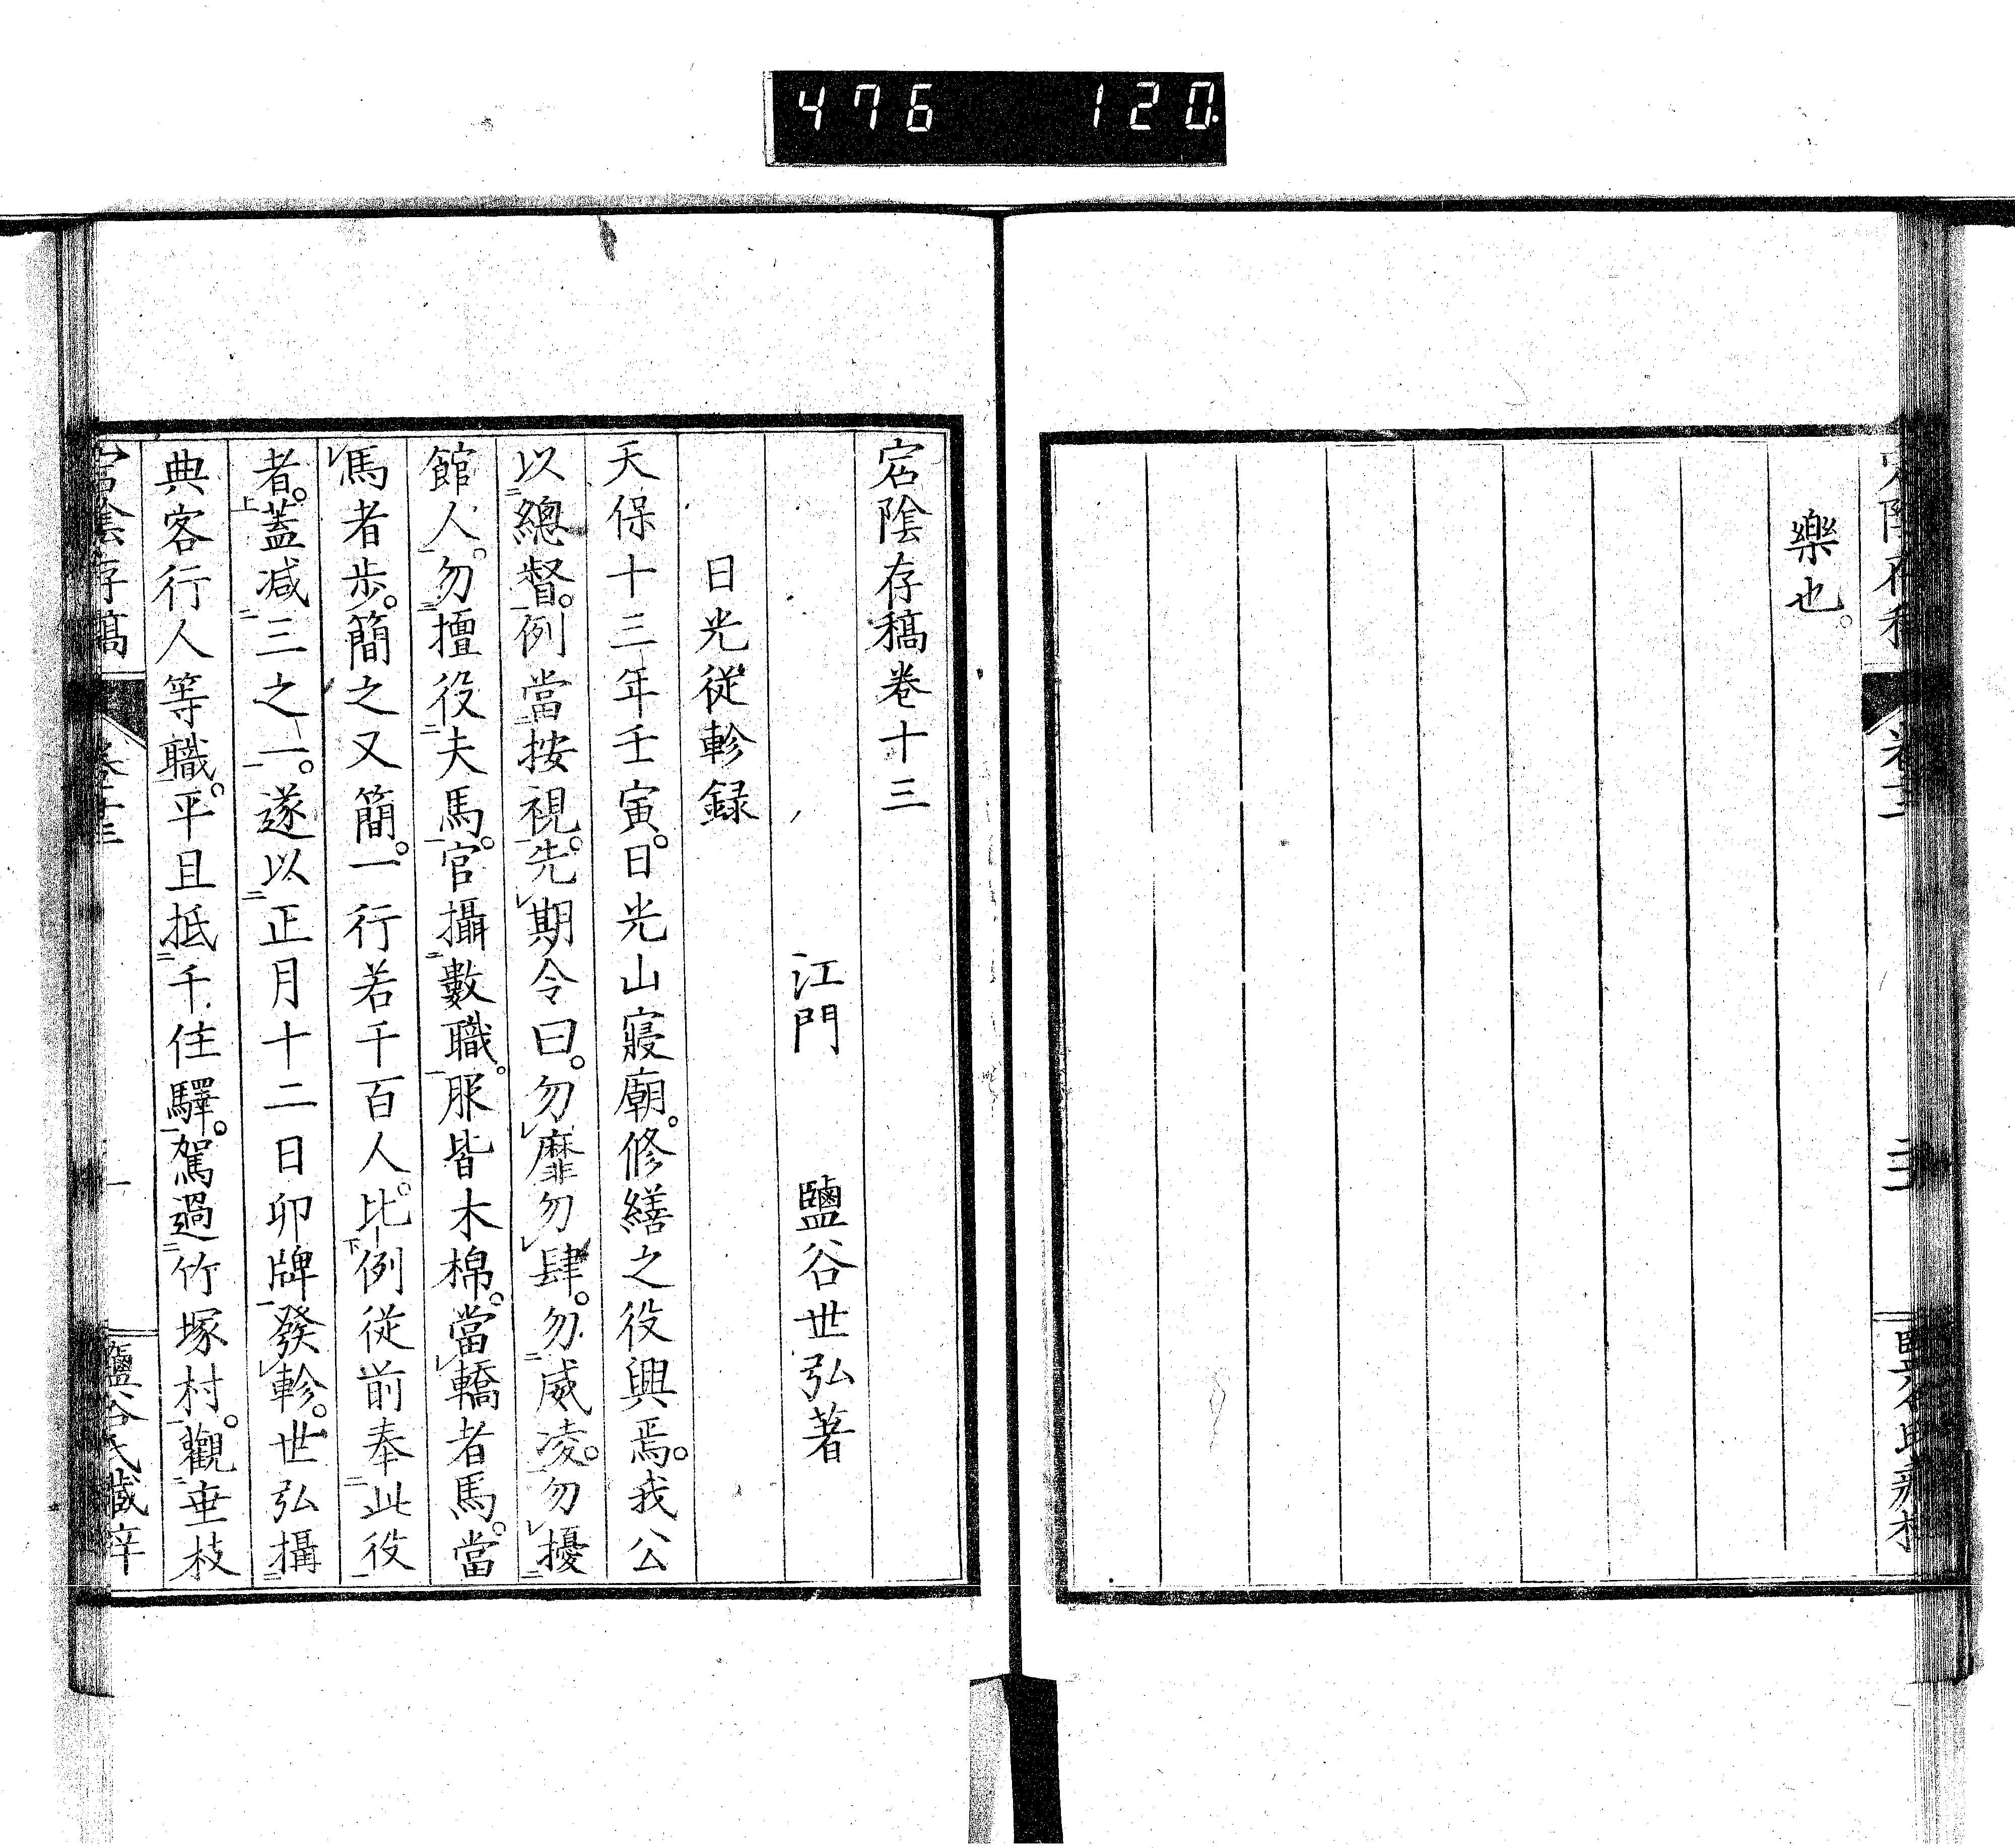 476 120
樂也。
宕陰存稿卷十三
江門 鹽谷世弘著
日光從軫録
天保十三年壬寅。日光山寢廟。修繕之役興焉。我公
以總督。例當按視。先期令曰。勿靡勿肆。勿威凌。勿擾
館人。勿擅役夫馬。官攝數職。服皆木棉。當轎者馬。當
馬者步。簡之又簡。一行若干百人。比例從前奉此役
者。蓋減三之一。遂以正月十二日卯牌發軫。世弘攝
典客行人等職。平旦抵千住驛。駕過竹塚村。觀垂枝
宕陰存稿 卷十三 一